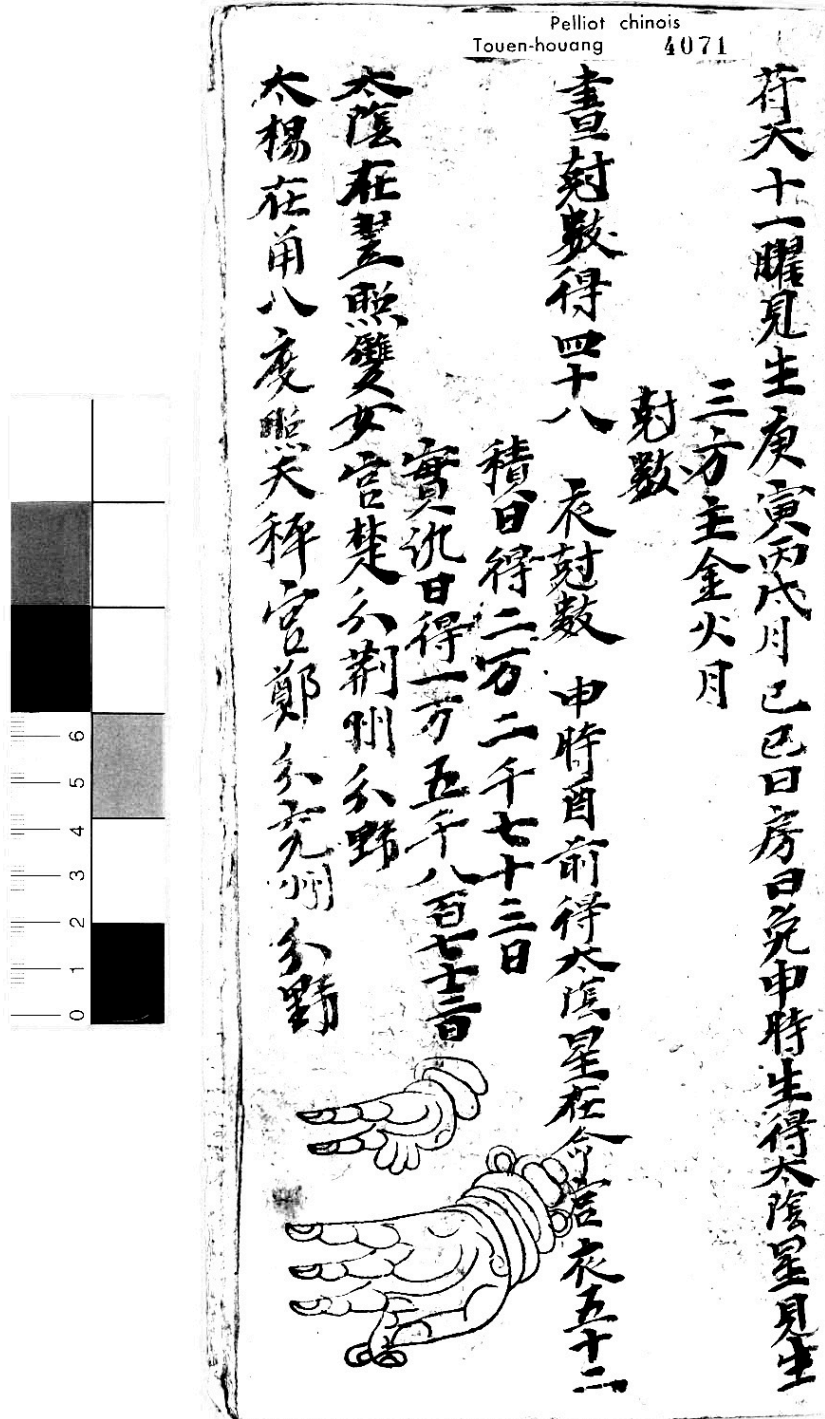 Pelliot chinois
Touen-houang 4071
符天十一曜見生庚寅丙戌月己巳日房日兔申時生得太陰星見生
三方主金火月
尅數
晝尅數得四十八 夜尅數 申時酉前得太陰星在命宮夜五十二
積日得二万二千七十三日
實沉日得一万五千八百七十二日
太陰在翌照雙女宮楚分荆州分野
太楊在角八度照天秤宮鄭分兗州分野
0 1 2 3 4 5 6